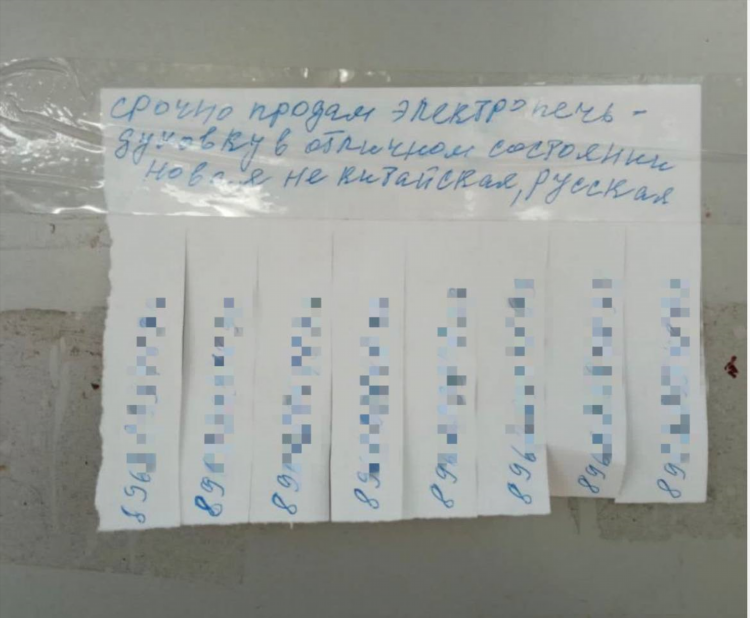 срочно продам электропечь -
духовку в отличном состоянии
новая не китайская, русская
896
896
89
89
89
896
896
89